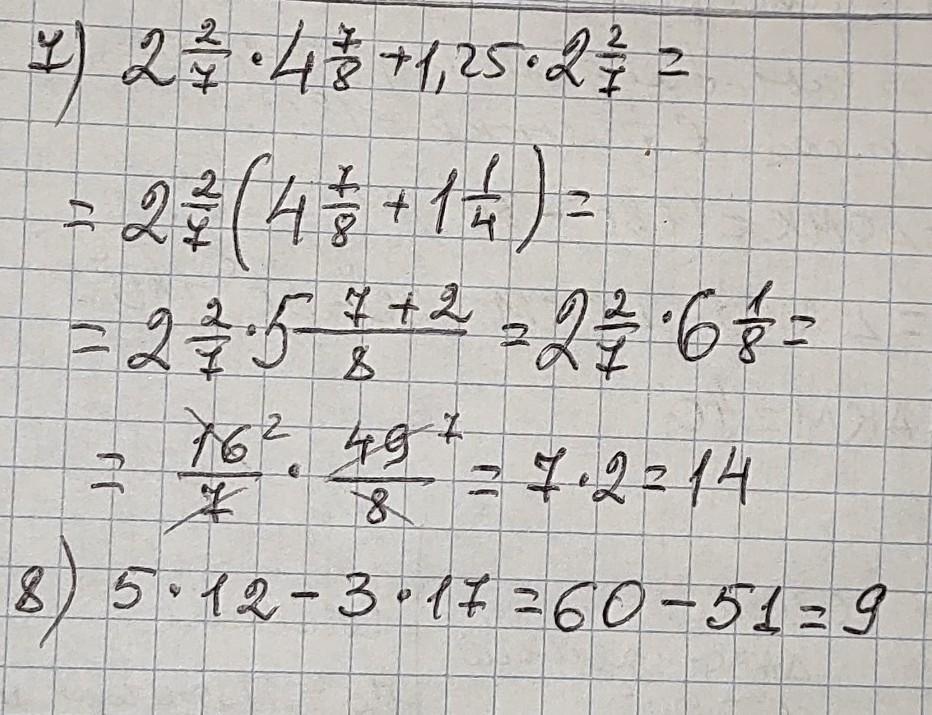 7) 2 2/7 · 4 7/8 + 1,25 · 2 2/7 =
= 2 2/7 (4 7/8 + 1 1/4) =
= 2 2/7 · 5 (7 + 2)/8 = 2 2/7 · 6 1/8 =
= 16²/7 · 49⁷/8 = 7 · 2 = 14
8) 5 · 12 − 3 · 17 = 60 − 51 = 9